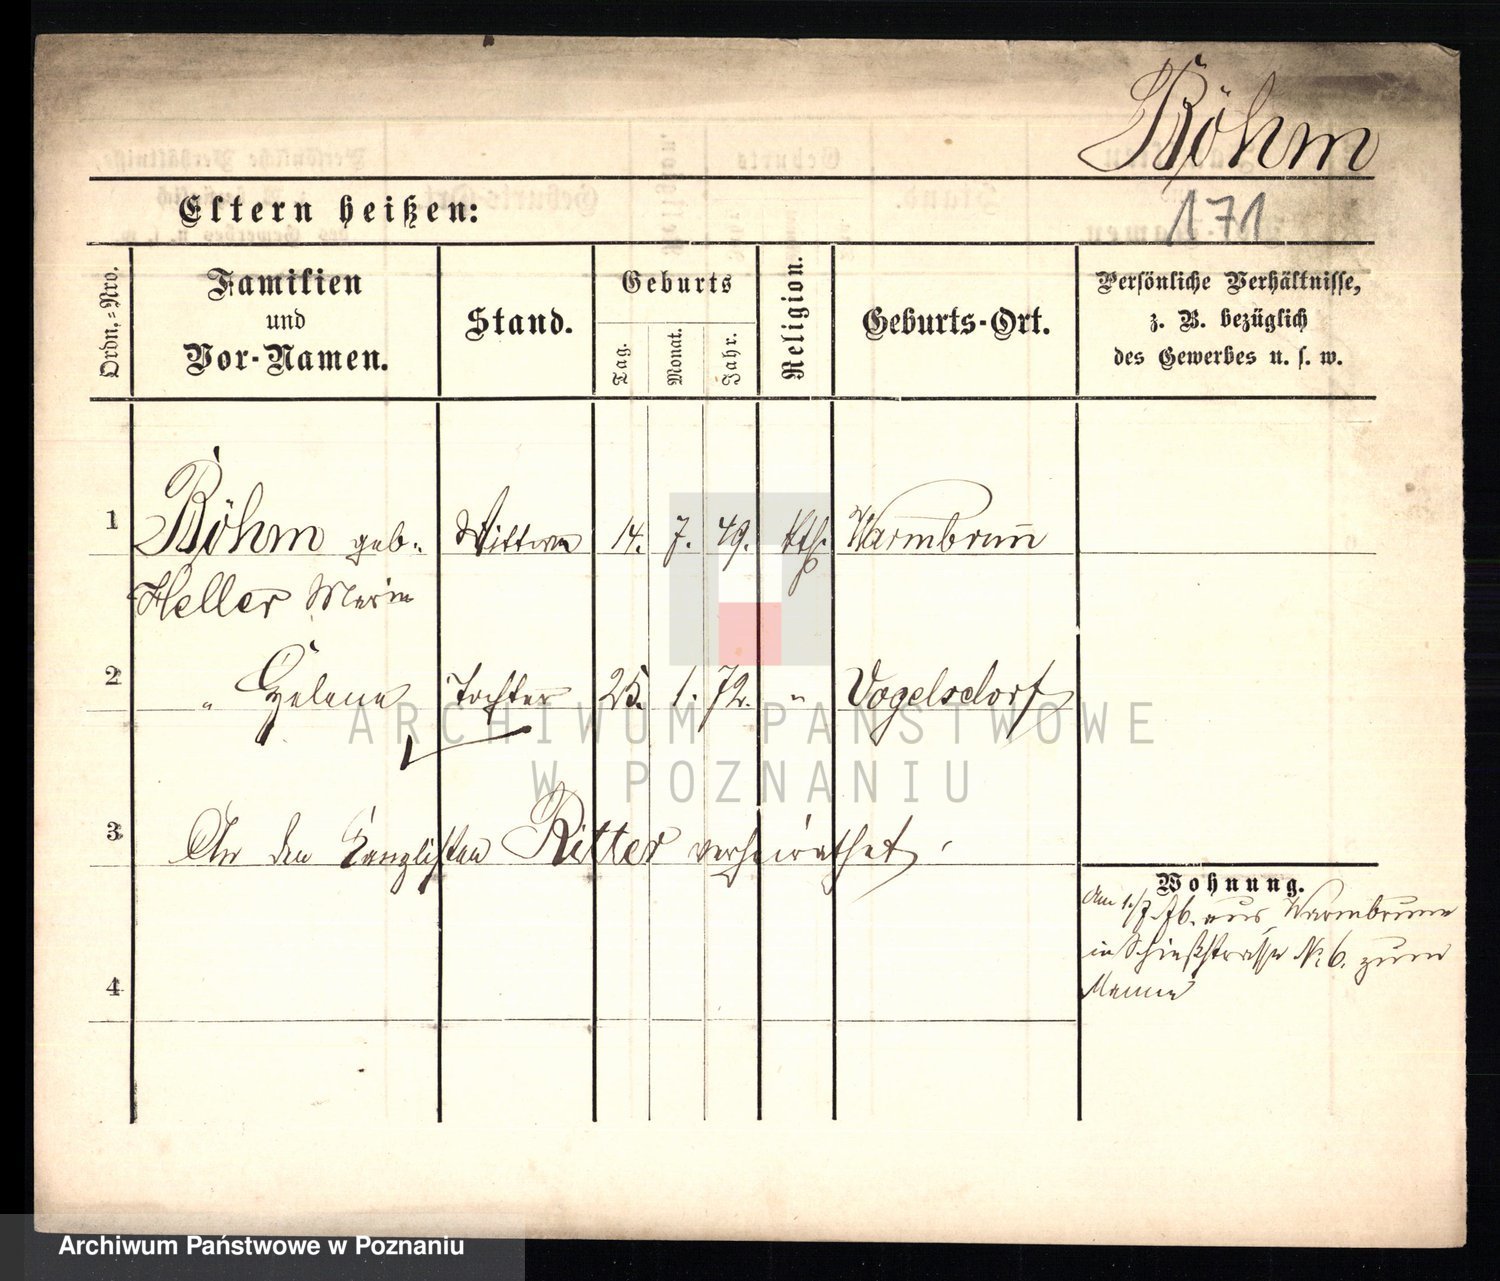 Böhm
171
Eltern heißen:
Ordn.-Nro.
Familien
und
Vor-Namen.
Stand.
Geburts
Tag.
Monat.
Jahr.
Religion.
Geburts-Ort.
Persönliche Verhältnisse,
z. B. bezüglich
des Gewerbes u. s. w.
1 Böhm geb. Wittwe 14. 7. 49. kth. Warmbrunn
Heller Marie
2 " Helene Tochter 25. 1. 72. " Vogelsdorf
3 An den Kanzlisten Ritter verheirathet.
4
Wohnung.
Am 1./7. 76. aus Warmbrunn
in Schießstrasse N. 6. zum
Manne
ARCHIWUM PAŃSTWOWE
W POZNANIU
Archiwum Państwowe w Poznaniu